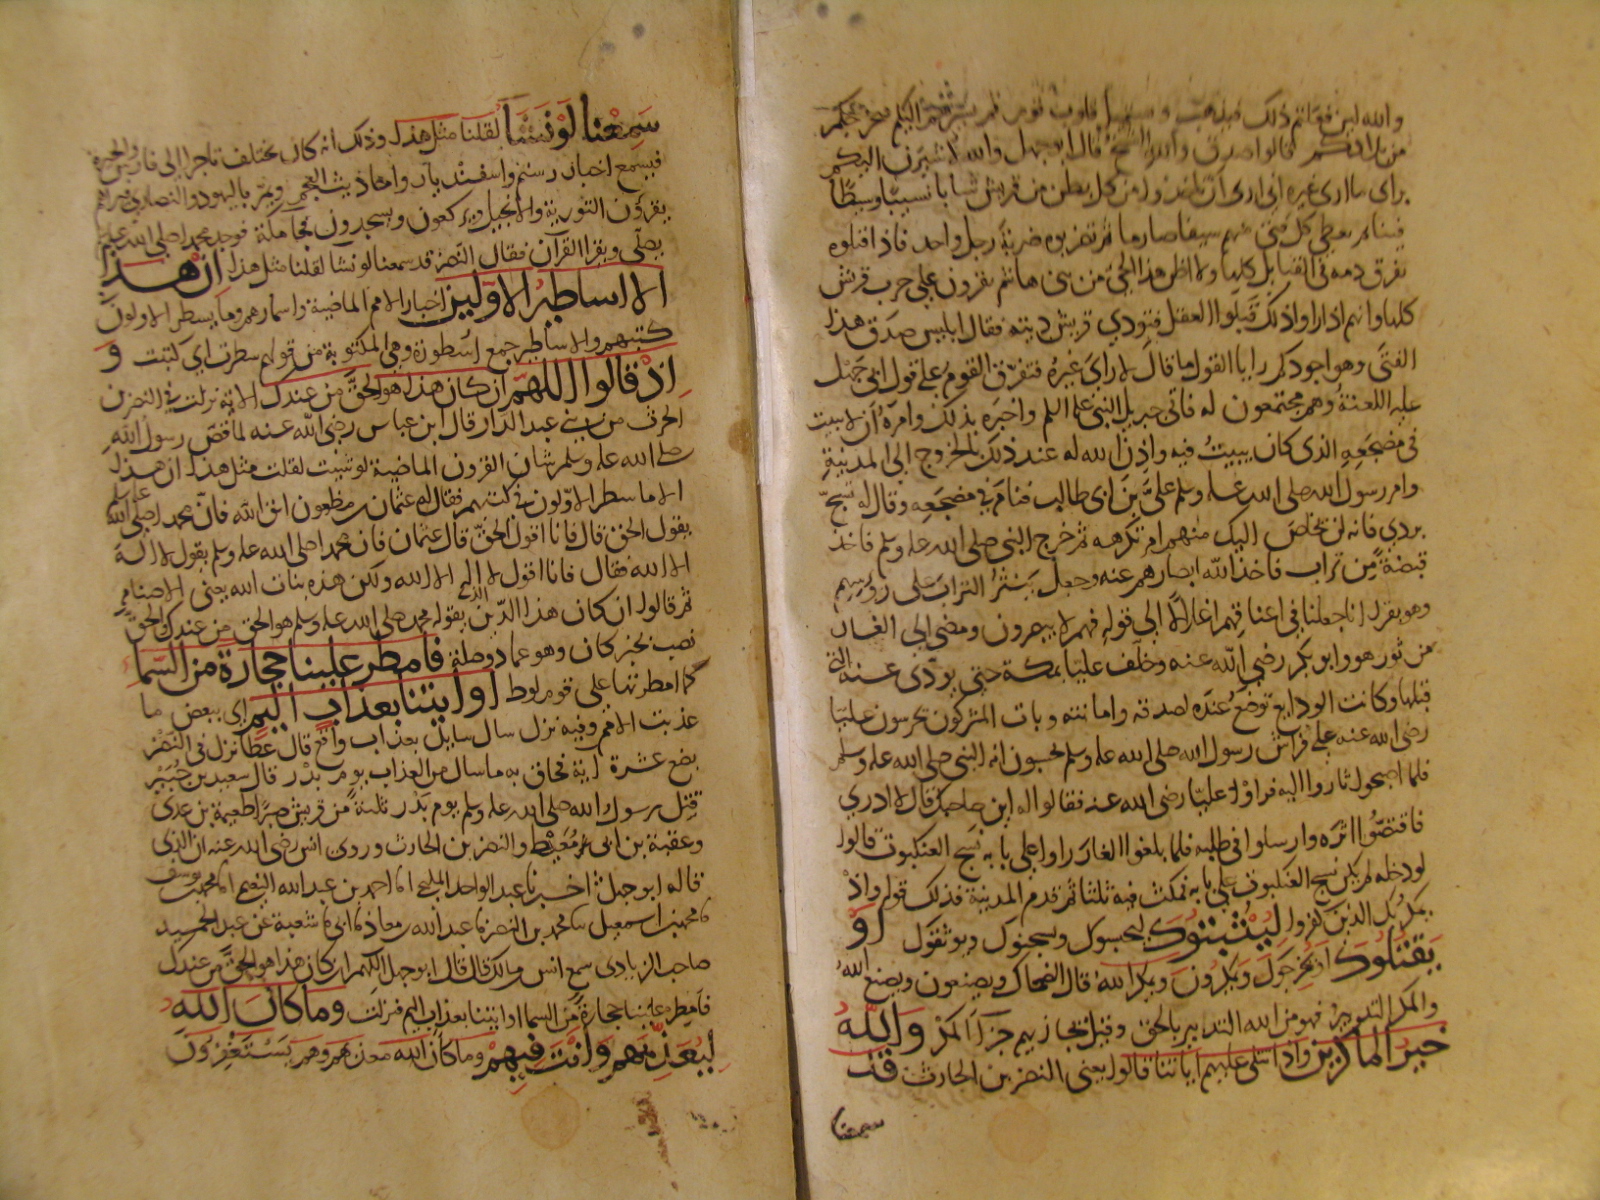 والله لين فعلتم ذلك فيذهب و يستميل قلوب قوم ثم يسير بهم اليكم فيخرجكم
من بلادكم قالوا صدق والله الشيخ فقال ابو جهل والله لاشيرن اليكم
براى ما ارى غيره انى ارى ان تاخذوا من كل بطن من قريش شابا نسيبا وسيطا
فينا ثم يعطى كل فتى منهم سيفا صارما ثم تضربوه ضربة رجل واحد فاذا قتلوه
تفرق دمه فى القبايل كلها ولا اظن هذا الحى من بنى هاشم يقوون على حرب قريش
كلها وانهم اذا راوا ذلك قبلوا العقل فتودي قريش ديته فقال ابليس صدق هذا
الفتى وهو اجودكم رايا القول ما قال لا راى غيره فتفرق القوم على قول ابى جهل
عليه اللعنة وهم مجتمعون له فاتى جبريل النبى عليه السلم واخبره بذلك وامره ان لا يبيت
فى مضجعه الذى كان يبيت فيه واذن الله له عند ذلك بالخروج الى المدينة
وامر رسول الله صلى الله عليه وسلم على بن ابى طالب فنام فى مضجعه وقال له تسج
بردي فانه لن يخلص اليك منهم امر تكرهه ثم خرج النبى صلى الله عليه وسلم فاخذ
قبضة من تراب فاخذ الله ابصارهم عنه وجعل ينثر التراب على روسهم
وهو يقرا انا جعلنا فى اعناقهم اغلالا الى قوله فهم لا يبصرون ومضى الى الغار
من ثور هو وابو بكر رضي الله عنه وخلف عليا بمكة حتى يودى عنه التى
قبلها وكانت الودايع توضع عنده لصدقه وامانته وبات المشركون يحرسون عليا
رضى الله عنه على فراش رسول الله صلى الله عليه وسلم يحسبون انه النبى صلى الله عليه وسلم
فلما اصبحوا ثاروا اليه فراوا عليا رضى الله عنه فقالوا له اين صاحبك قال لا ادري
فاقتصوا اثره وارسلوا فى طلبه فلما بلغوا الغار راوا على بابه نسج العنكبوت قالوا
لو دخله لم يكن نسج العنكبوت على بابه فمكث فيه ثلثا ثم قدم المدينة فذلك قوله واذ
يمكر بك الذين كفروا ليثبتوك ليحبسوك ويسجنوك ويوثقوك او
يقتلوك او يخرجوك ويمكرون ويمكر الله قال الضحاك ويصنعون ويصنع الله
والمكر التدبير فهو من الله التدبير بالحق وقيل يجازيهم جزآ المكر والله
خير الماكرين واذا تتلى عليهم اياتنا قالوا يعنى النضر بن الحارث قد
سمعنا
سمعنا لو نشا لقلنا مثل هذا وذلك انه كان يختلف تاجرا الى فارس والحيرة
فيسمع اخبار رستم واسفنديار واحاديث العجم ويمر باليهود والنصارى فيراهم
يقرون التورية والانجيل ويركعون ويسجدون فجا مكة فوجد محمدا صلى الله عليه وسلم
يصلى ويقرا القرآن فقال النضر قد سمعنا لو نشا لقلنا مثل هذا ان هذا
الا اساطير الاولين اخبار الامم الماضية واسمارهم وما يسطر الاولون
كتبهم والاساطير جمع اسطورة وهى المكتوبة من قولهم سطرت اي كتبت و
اذ قالوا اللهم ان كان هذا هو الحق من عندك الاية نزلت فى النضر بن
الحرث من بنى عبد الدار قال ابن عباس رضى الله عنه لما قص رسول الله
صلى الله عليه وسلم شان القرون الماضية لو شيت لقلت مثل هذا ان هذا
الا ما سطر الاولون فى كتبهم فقال له عثمان بن مظعون اتق الله فان محمدا صلى الله عليه وسلم
يقول الحق قال فانا اقول الحق قال عثمان فان محمدا صلى الله عليه وسلم يقول لا اله
الا الله فقال فانا اقول لا اله الا الله ولكن هذه بنات الله يعنى الاصنام
ثم قالوا ان كان هذا الذى يقوله محمد صلى الله عليه وسلم هو الحق من عندك الحق
نصب بخبر كان وهو عماد وصلة فامطر علينا حجارة من السما
كما امطرتها على قوم لوط او ايتنا بعذاب اليم اى ببعض ما
عذبت الامم وفيه نزل سال سايل بعذاب واقع قال عطا نزل فى النضر
بضع عشرة آية فحاق به ما سال من العذاب يوم بدر قال سعيد بن جبير
قتل رسول الله صلى الله عليه وسلم يوم بدر ثلثة من قريش صبرا طعيمة بن عدى
وعقبة بن ابى معيط والنضر بن الحارث وروى انس رضى الله عنه ان الذى
قاله ابو جهل اخبرنا عبد الواحد المليحى انا احمد بن عبد الله النعيمى انا محمد بن يوسف
نا محمد بن اسمعيل نا محمد بن النضر نا عبد الله بن معاذ نا ابى نا شعبة عن عبد الحميد
صاحب الزيادى سمع انس بن مالك قال قال ابو جهل اللهم ان كان هذا هو الحق من عندك
فامطر علينا حجارة من السما او ايتنا بعذاب اليم فنزلت وما كان الله
ليعذبهم وانت فيهم وما كان الله معذبهم وهم يستغفرون